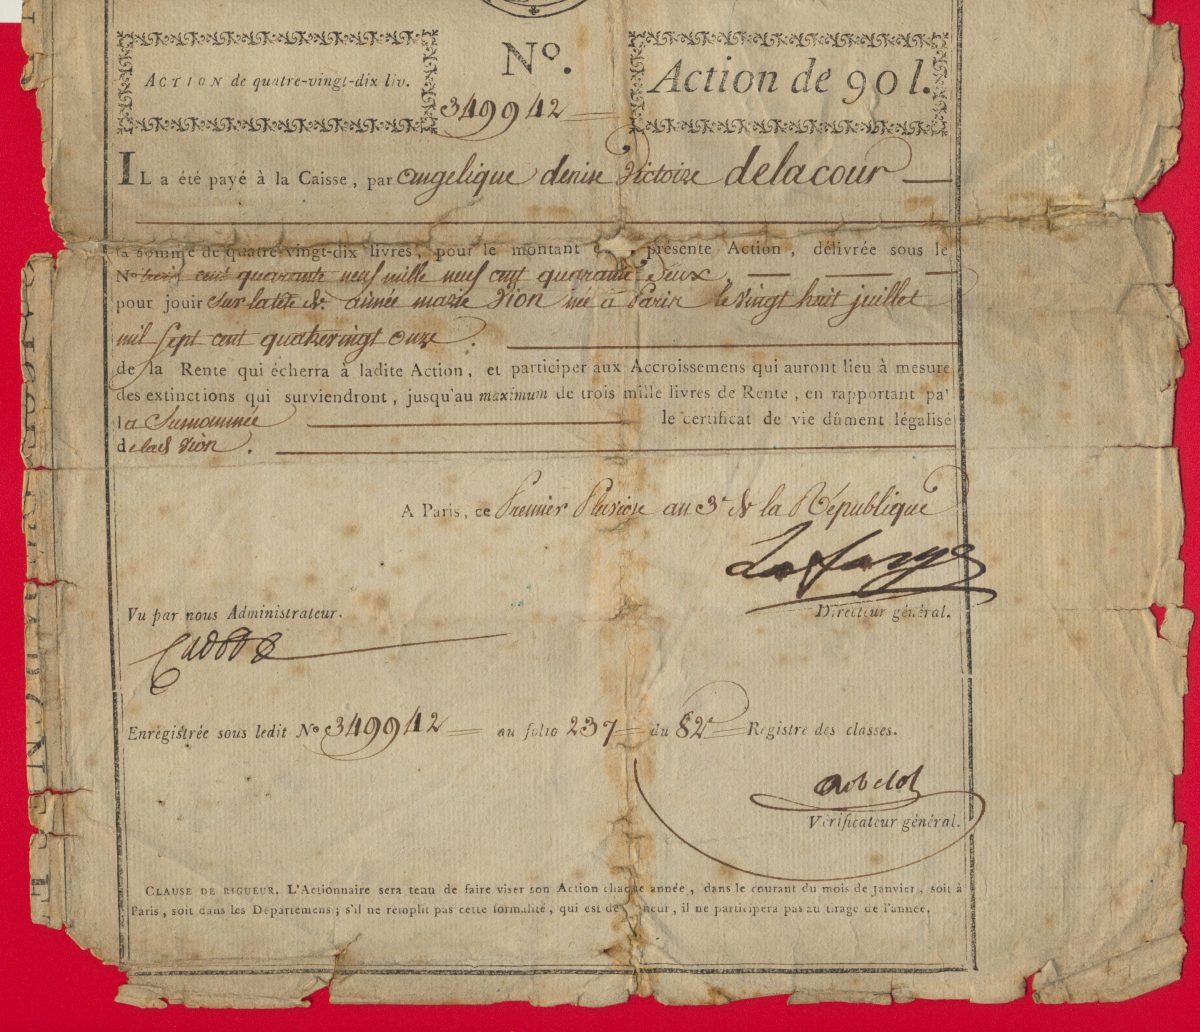 ACTION de quatre-vingt-dix liv.
No.
349942
Action de 90 l.
IL a été payé à la Caisse, par angelique denise Victoire delacour
la somme de quatre-vingt-dix livres, pour le montant présente Action, délivrée sous le
No trois cent quarante neuf mille neuf cent quarante deux.
pour jouir sur la tête de aimée marie Dion né à Paris le vingt huit juillet
mil sept cent quatrevingt onze.
de la Rente qui écherra à ladite Action, et participer aux Accroissemens qui auront lieu à mesure
des extinctions qui surviendront, jusqu'au maximum de trois mille livres de Rente, en rapportant pa'
la surnommée le certificat de vie dûment légalisé
de Dion.
A Paris, ce Premier Pluviose an 3e de la République
Lafarge
Directeur général.
Vu par nous Administrateur.
Enregistrée sous ledit No 349942 au folio 237 du 82e Registre des classes.
Vérificateur général.
CLAUSE DE RIGUEUR. L'Actionnaire sera tenu de faire viser son Action chaque année, dans le courant du mois de janvier, soit à
Paris, soit dans les Départemens; s'il ne remplit pas cette formalité, qui est de , il ne participera pas au tirage de l'année.